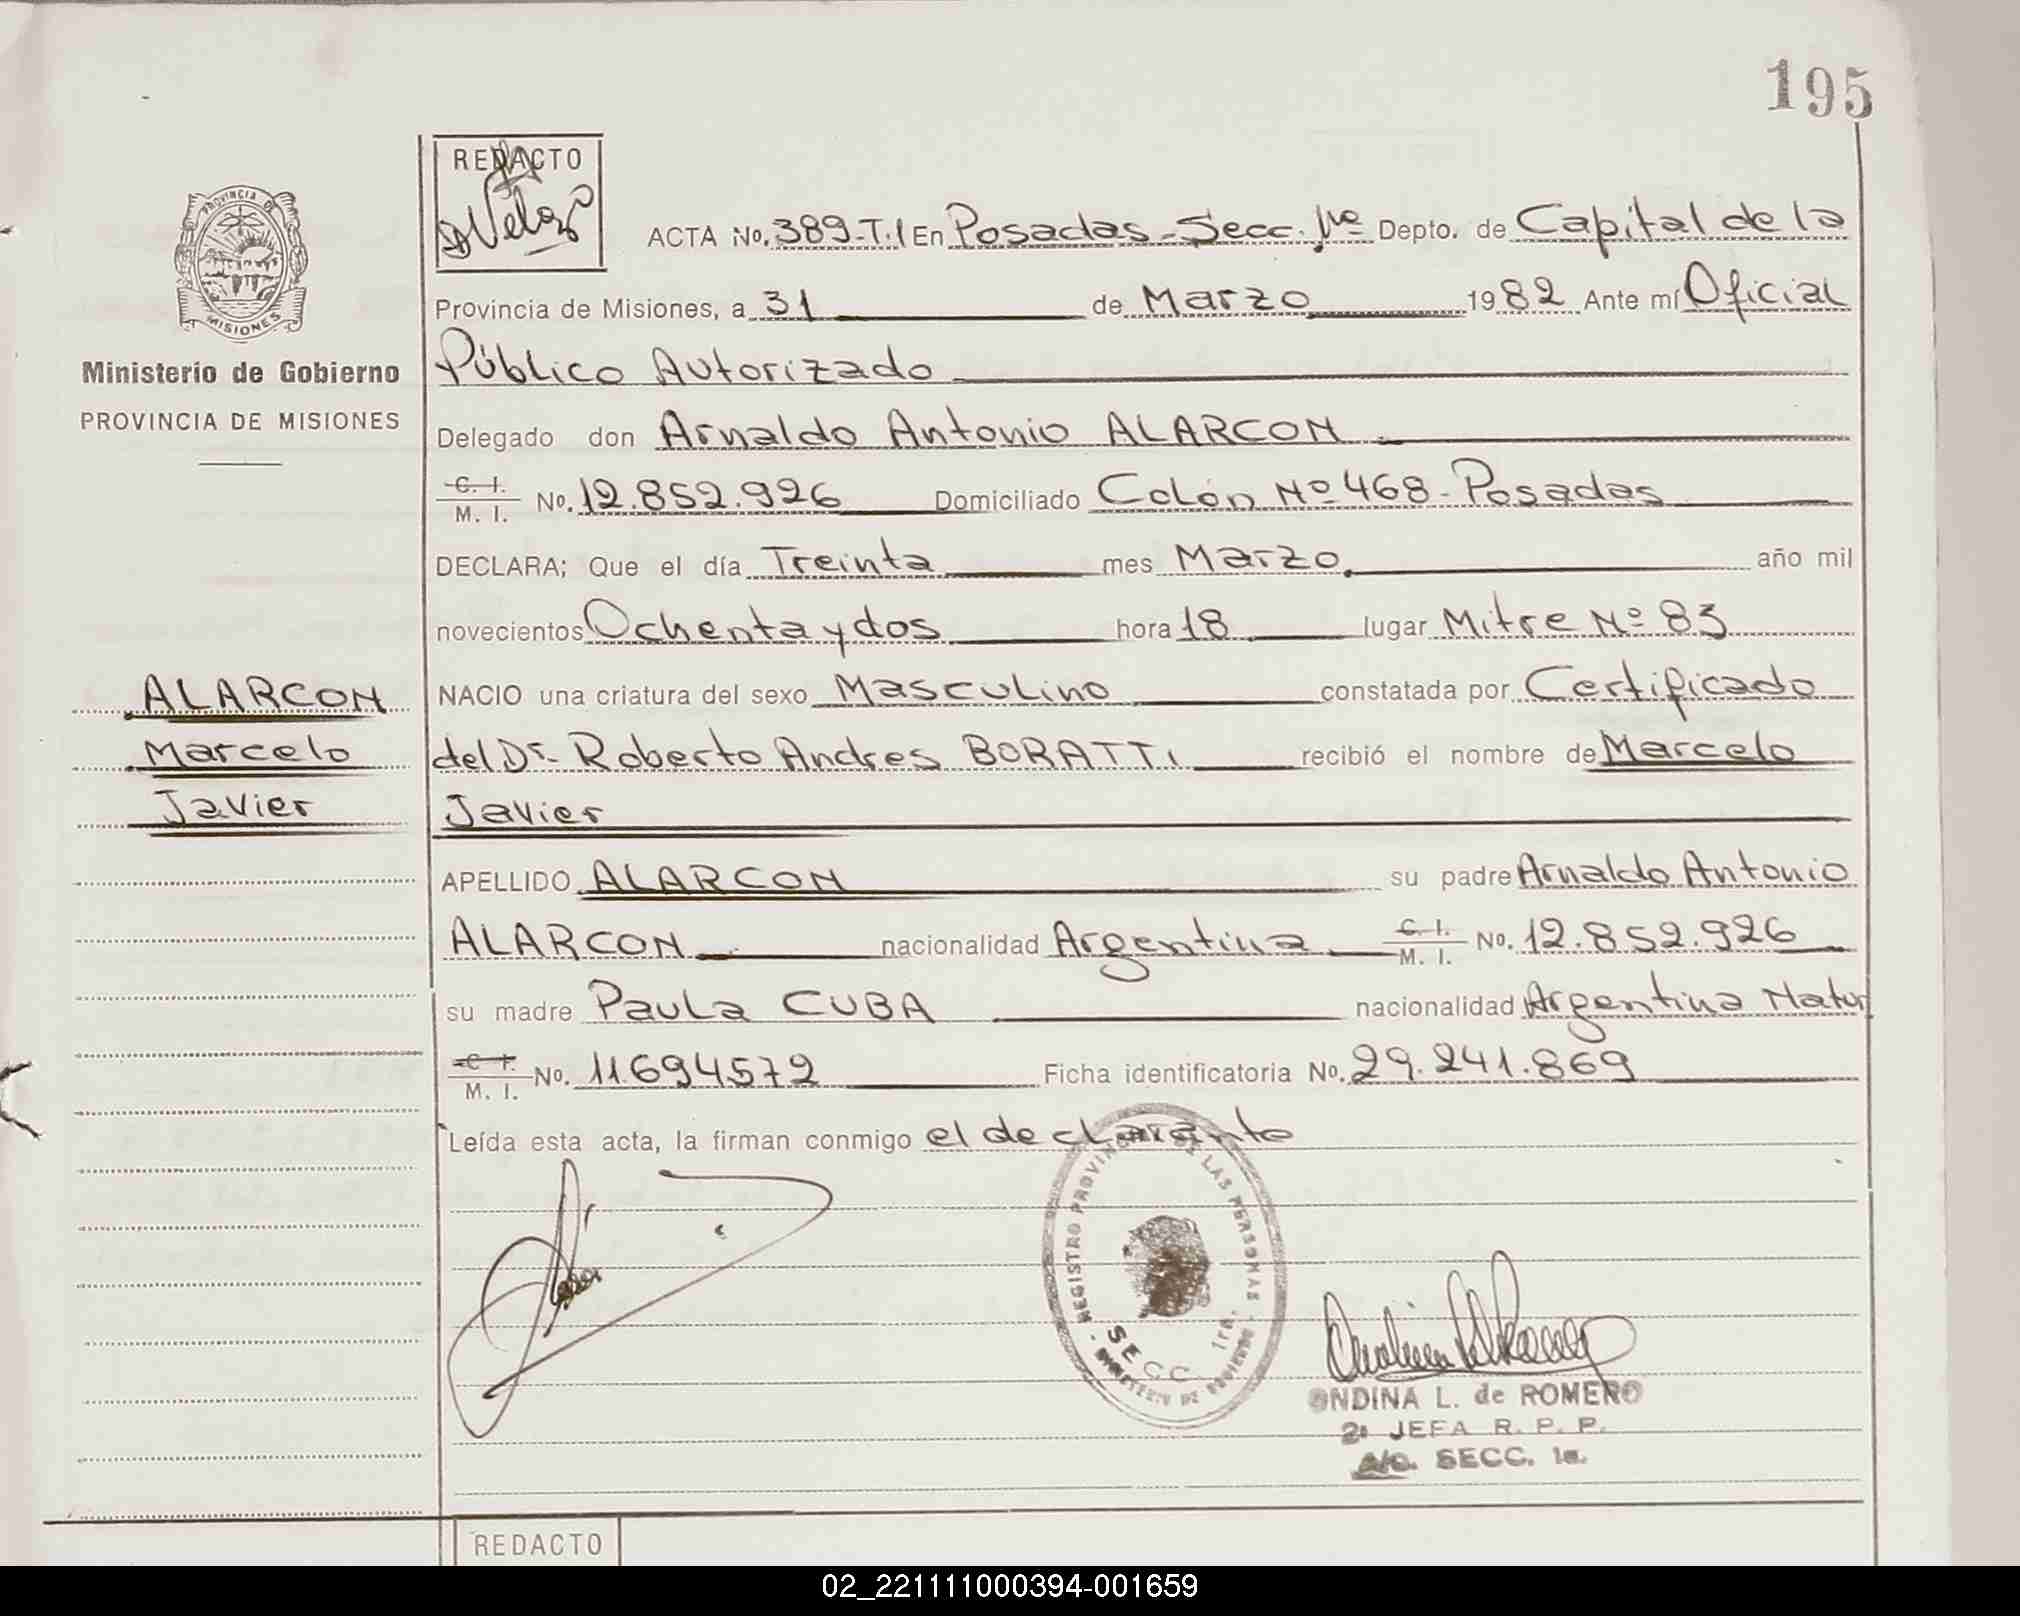 195
REDACTO
PROVINCIA DE
MISIONES
Ministerio de Gobierno
PROVINCIA DE MISIONES
ACTA No. 389-T.I En Posadas-Secc. 1ra Depto. de Capital de la
Provincia de Misiones, a 31 de Marzo 1982 Ante mí Oficial
Público Autorizado
Delegado don Arnaldo Antonio ALARCON
C. I.
M. I. No. 12.852.926 Domiciliado Colón Nº 468-Posadas
DECLARA; Que el día Treinta mes Marzo año mil
novecientos Ochenta y dos hora 18 lugar Mitre Nº 83
NACIO una criatura del sexo Masculino constatada por Certificado
del Dr. Roberto Andres BORATTI recibió el nombre de Marcelo
Javier
ALARCON
Marcelo
Javier
APELLIDO ALARCON su padre Arnaldo Antonio
ALARCON nacionalidad Argentina C. I.
M. I. No. 12.852.926
su madre Paula CUBA nacionalidad Argentina Natur
C. I.
M. I. No. 11694572 Ficha identificatoria No. 29.241.869
Leída esta acta, la firman conmigo el declarante
REGISTRO PROVIN LAS PERSONAS
SECC. 1ra.
ONDINA L. de ROMERO
2a JEFA R. P. P.
A/C. SECC. 1a.
REDACTO
02_221111000394-001659